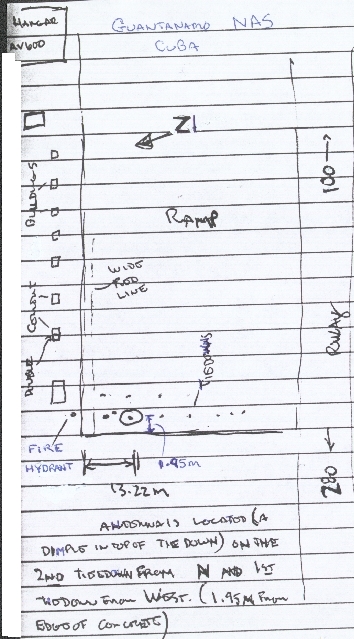 HANGAR
AV600
GUANTANAMO NAS
CUBA
N
BUILDINGS
RAMP
100 →
WIDE
RED
LINE
CONDUIT
TIEDOWNS
RWAY
DOUBLE
FIRE
HYDRANT
1.95M
280
13.22M
ANTENNA IS LOCATED (A
DIMPLE IN TOP OF TIE DOWN) ON THE
2ND TIEDOWN FROM N AND 1ST
TIEDOWN FROM WEST. (1.95M FROM
EDGE OF CONCRETE)